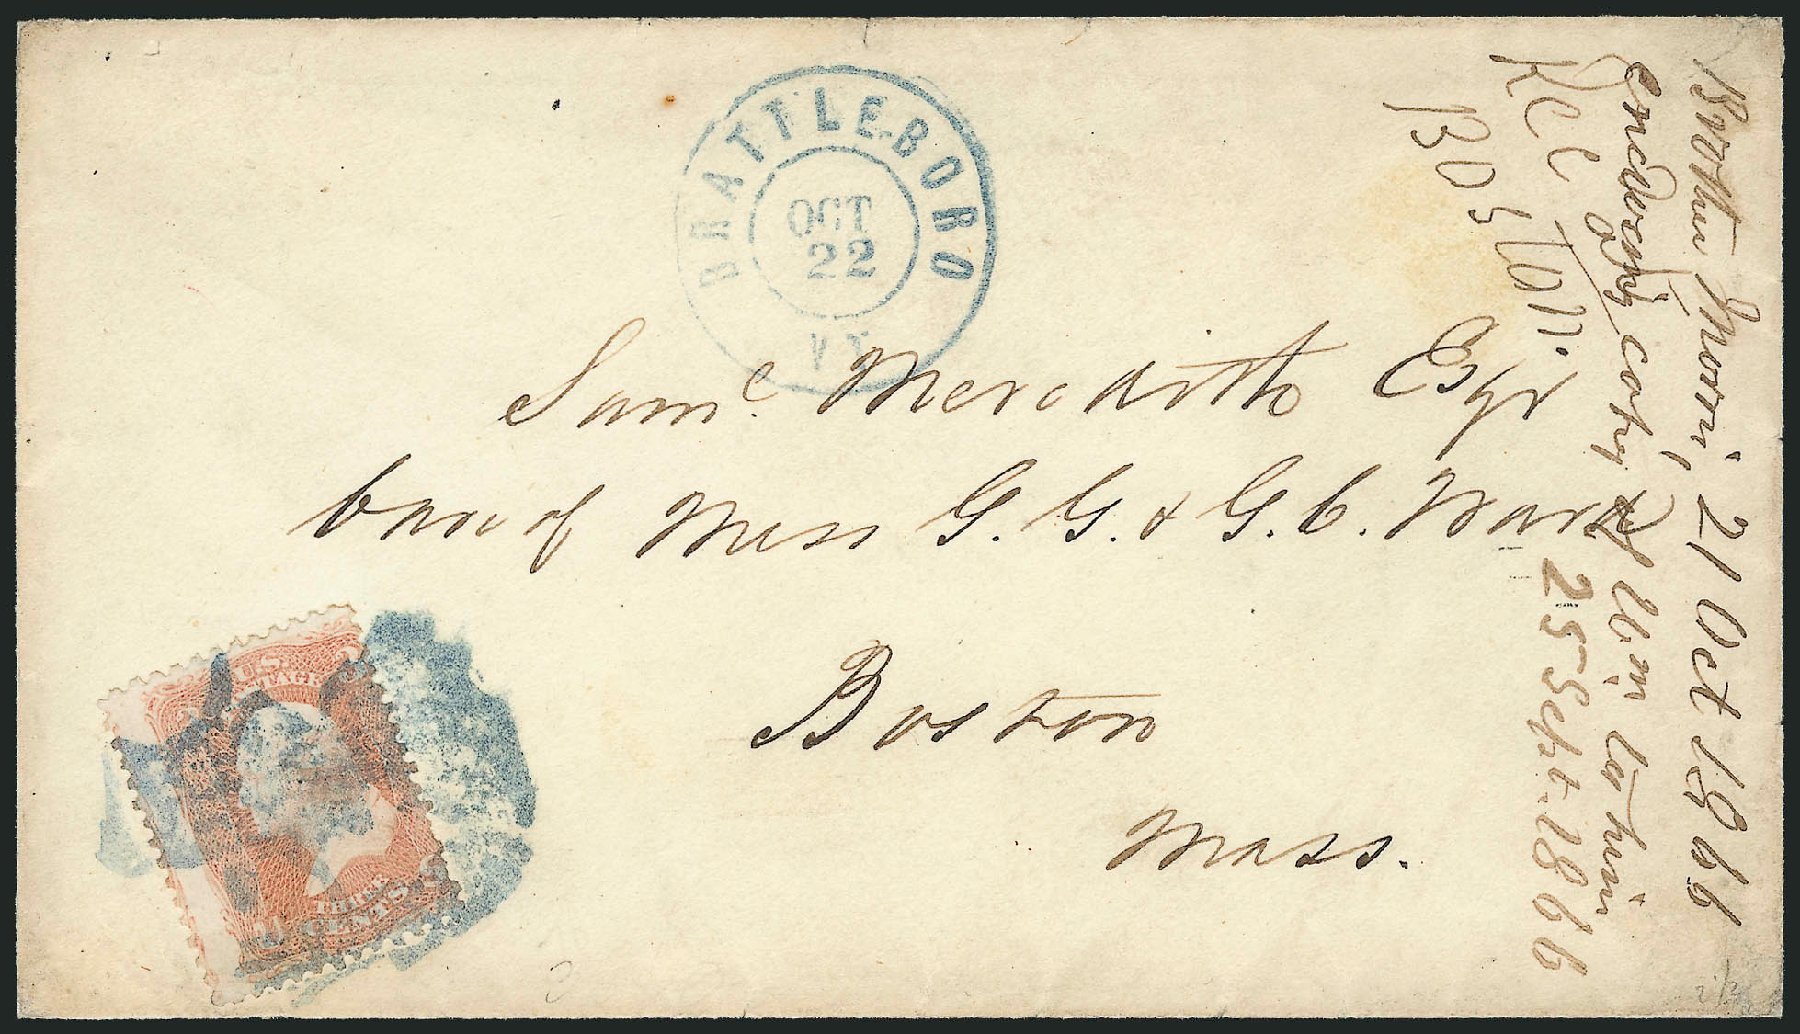 BRATTLEBORO
OCT
22
VT
Saml Meredith Esqr
Care of Mess G. G. & G. C. Ward
Boston
Mass.
U.S.
POSTAGE
THREE
CENTS
Brother Morris, 21 Oct 1866
enclosing copy of Wm to him
25 Sept. 1866
Rec
Boston.